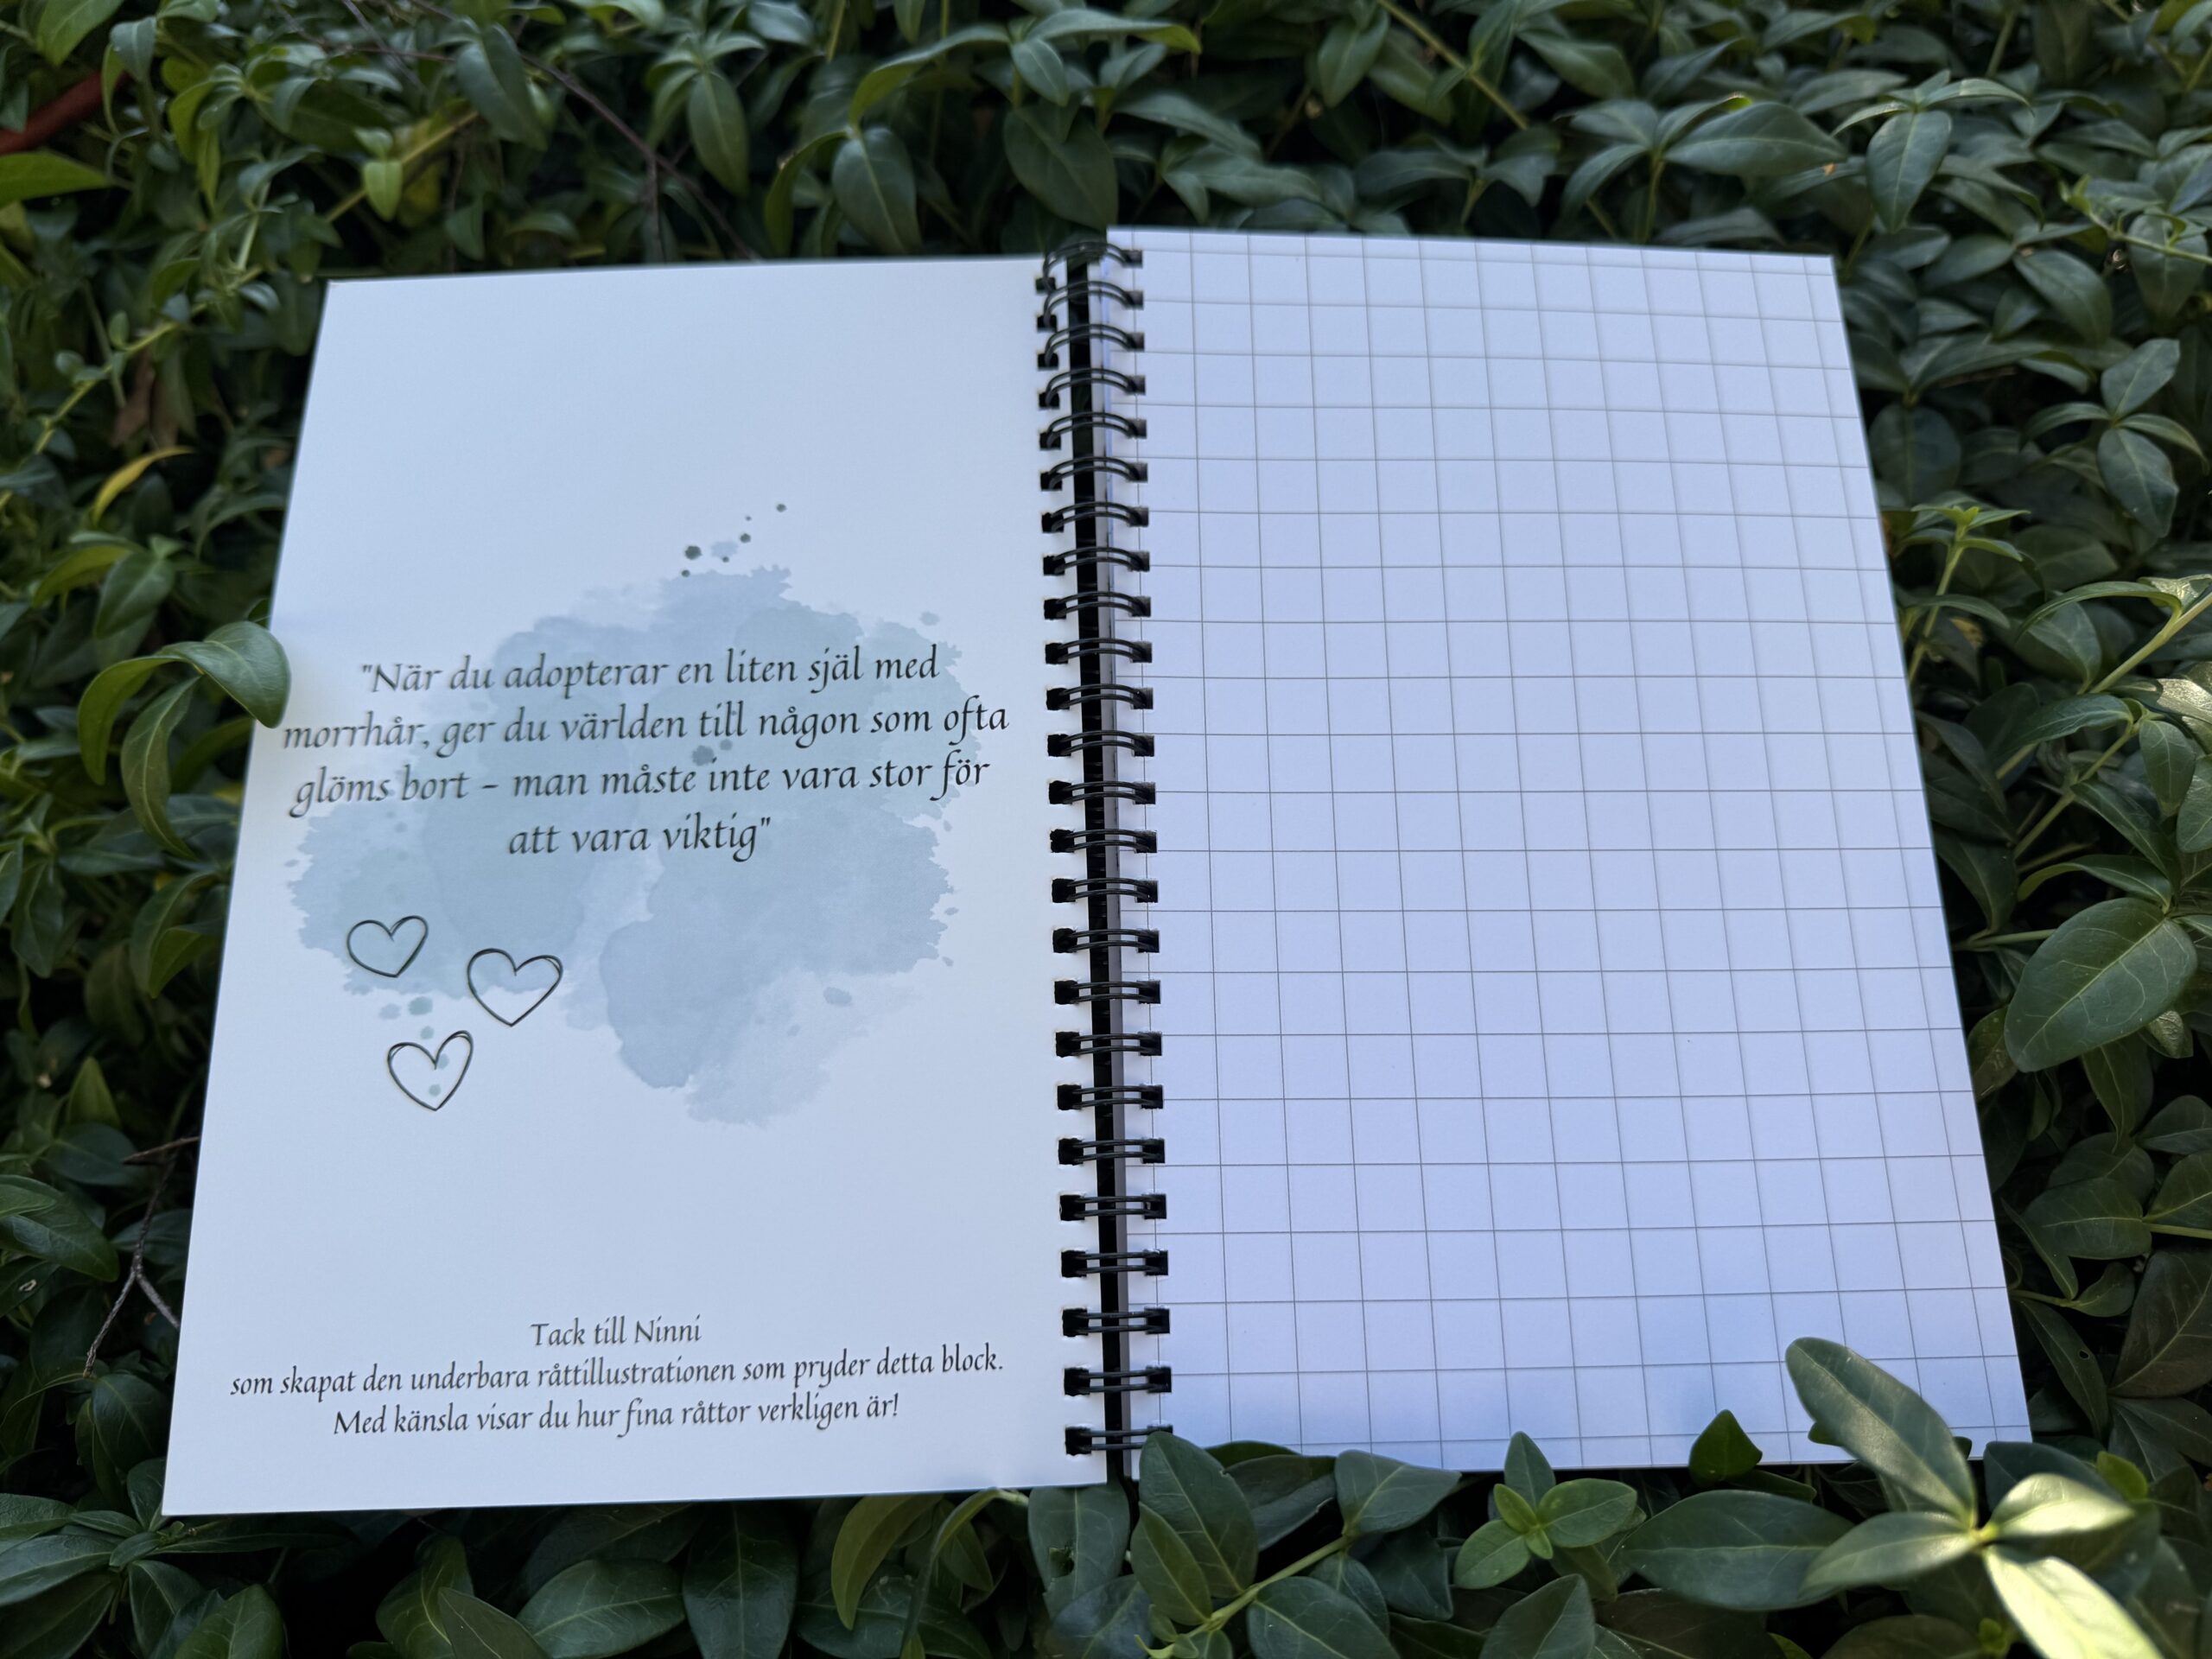 "När du adopterar en liten själ med
morrhår, ger du världen till någon som ofta
glöms bort – man måste inte vara stor för
att vara viktig"
Tack till Ninni
som skapat den underbara råttillustrationen som pryder detta block.
Med känsla visar du hur fina råttor verkligen är!